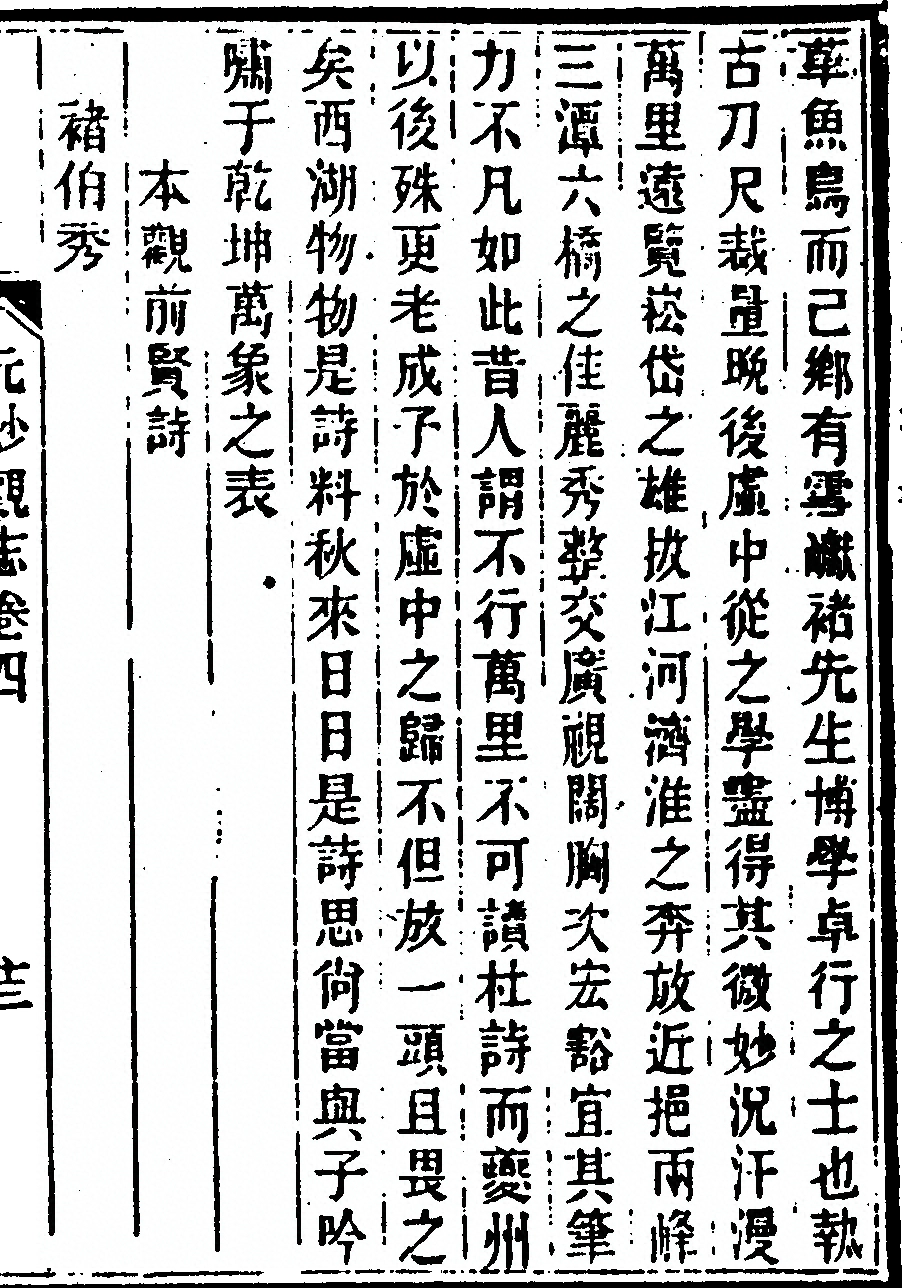 草魚鳥而已鄉有雪巘褚先生博學卓行之士也執
古刀尺裁量晚後虛中從之學盡得其微妙況汗漫
萬里遠覽崧岱之雄拔江河濟淮之奔放近挹兩峰
三潭六橋之佳麗秀整交廣視闊胸次宏豁宜其筆
力不凡如此昔人謂不行萬里不可讀杜詩而夔州
以後殊更老成予於虛中之歸不但放一頭且畏之
矣西湖物物是詩料秋來日日是詩思尙當與子吟
嘯于乾坤萬象之表
本觀前賢詩
褚伯秀
元妙觀志卷四
十三